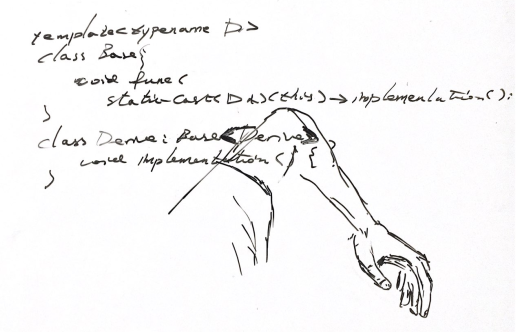 template<typename D>
class Base{
void func(
static-cast(D*)(this)->implementation();
}
class Derive: Base<Derive>
void implementation() {
}